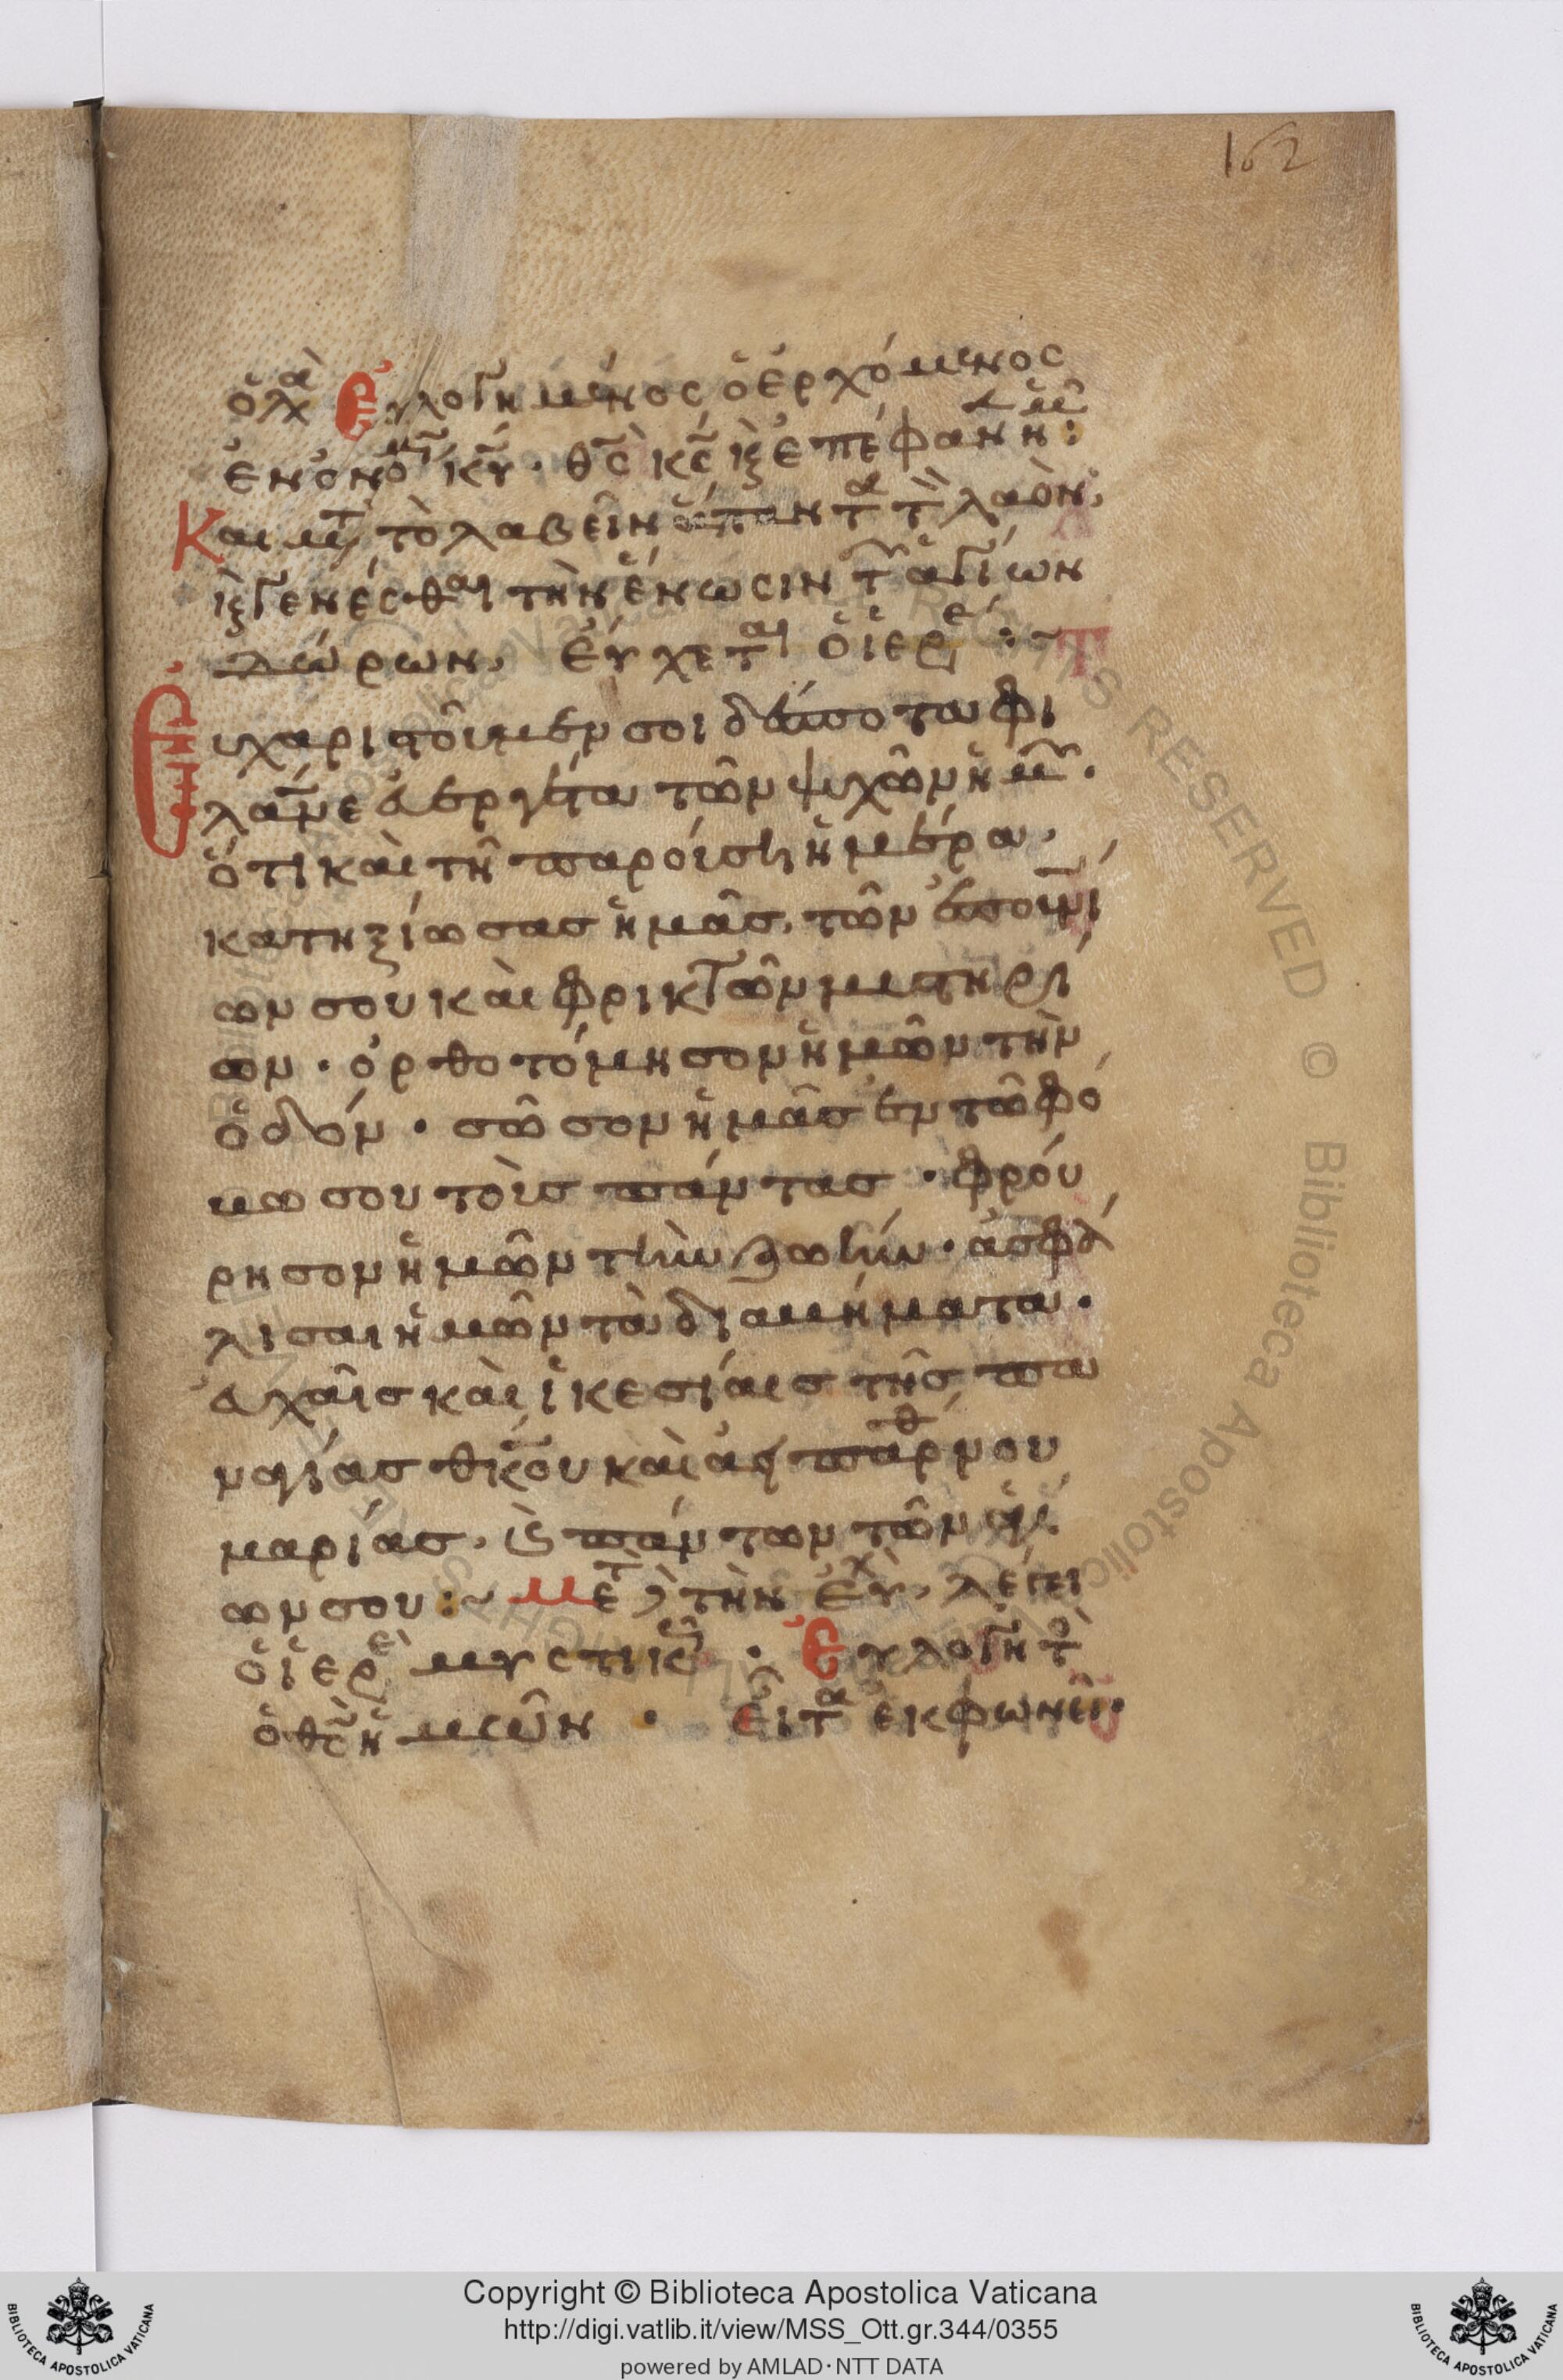 162
ὁ λα Εὐλογημένος ὁ ἐρχόμενος
ἐν ὀνόμ κυ · θς κς κ ἐπέφανεν ἡμ :
Και μετ τὸ λαβεῖν ἅπαντα τ λαὸν,
κ γενέσθαι τὴν ἕνωσιν τ ἁγίων
δώρων, εὔχεται ὁ ἱερε :~
Εὐχαριστοῦμέν σοι δέσποτα φι
λάνε εὐεργέτα τῶν ψυχῶν ἡμ .
ὅτι καὶ τῇ παρούσῃ ἡμέρα,
κατηξίωσας ἡμᾶς, τῶν ἐπουνί
ων σου καὶ φρικτῶν μυστηρί
ων · ὀρθοτόμησον ἡμῶν τὴν
ὁδόν · σῶσον ἡμᾶς ἐν τῶ φό
βω σου τοὺς πάντας · φρού
ρησον ἡμῶν τὴν ζωήν · ἀσφά
λισαι ἡμῶν τὰ διαβήματα ·
εὐχαῖς καὶ ἱκεσίαις τῆς πα
ναγίας θκου καὶ ἀει παρθνου
μαρίας, κ πάντων τῶν ἁγί
ων σου :~ Μετ τὴν εὐχ, λέγει
ὁ ἱερε μυστικῶ · Εὐλογητὸ
ὁ θς ἡμῶν · εἶτα ἐκφωνεῖ ·
Copyright © Biblioteca Apostolica Vaticana
http://digi.vatlib.it/view/MSS_Ott.gr.344/0355
powered by AMLAD·NTT DATA
BIBLIOTECA APOSTOLICA VATICANA
BIBLIOTECA APOSTOLICA VATICANA